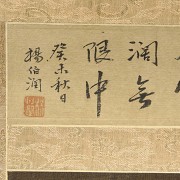 濶無
限中
癸未秋日
楊伯潤